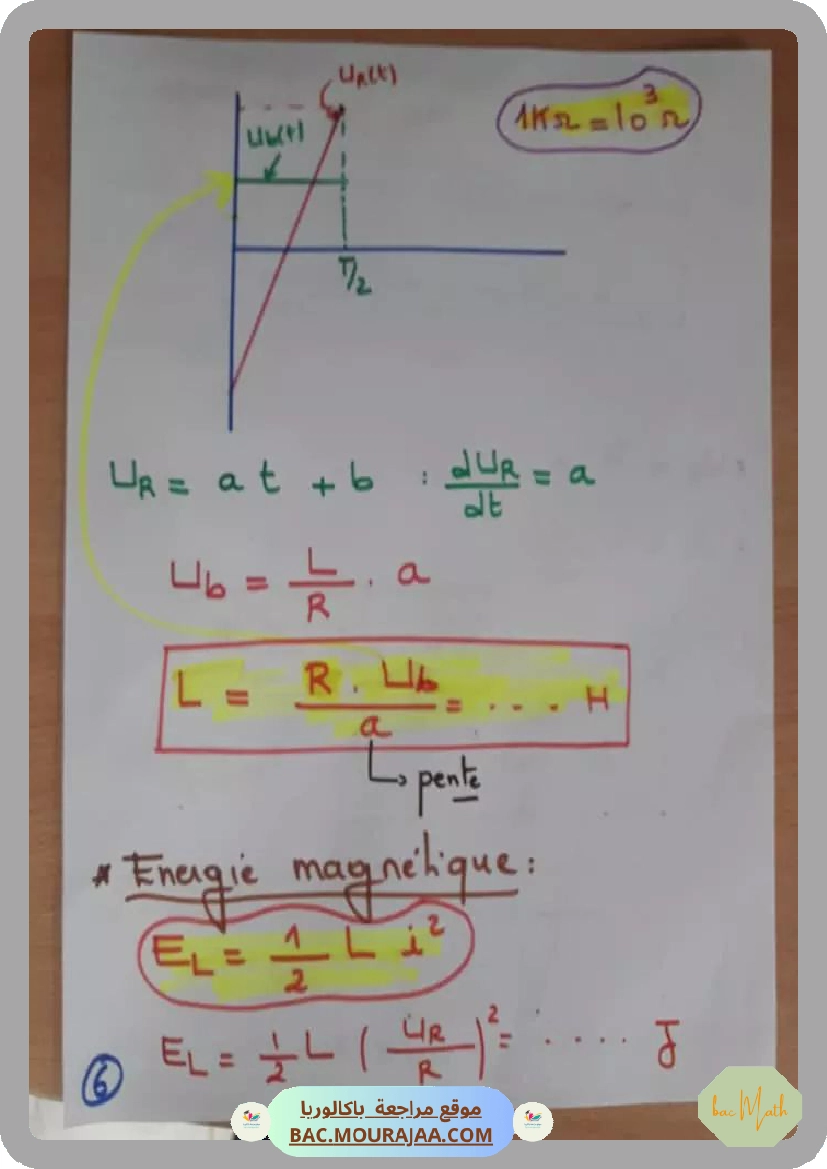 uR(t)
1KΩ = 10³Ω
ub(t)
T/2
uR = a t + b : duR/dt = a
ub = L/R . a
L = R . ub/a = .... H
↳ pente
* Energie magnétique :
EL = 1/2 L i²
EL = 1/2 L (uR/R)² = ..... J
6
موقع مراجعة باكالوريا
BAC.MOURAJAA.COM
bac Math